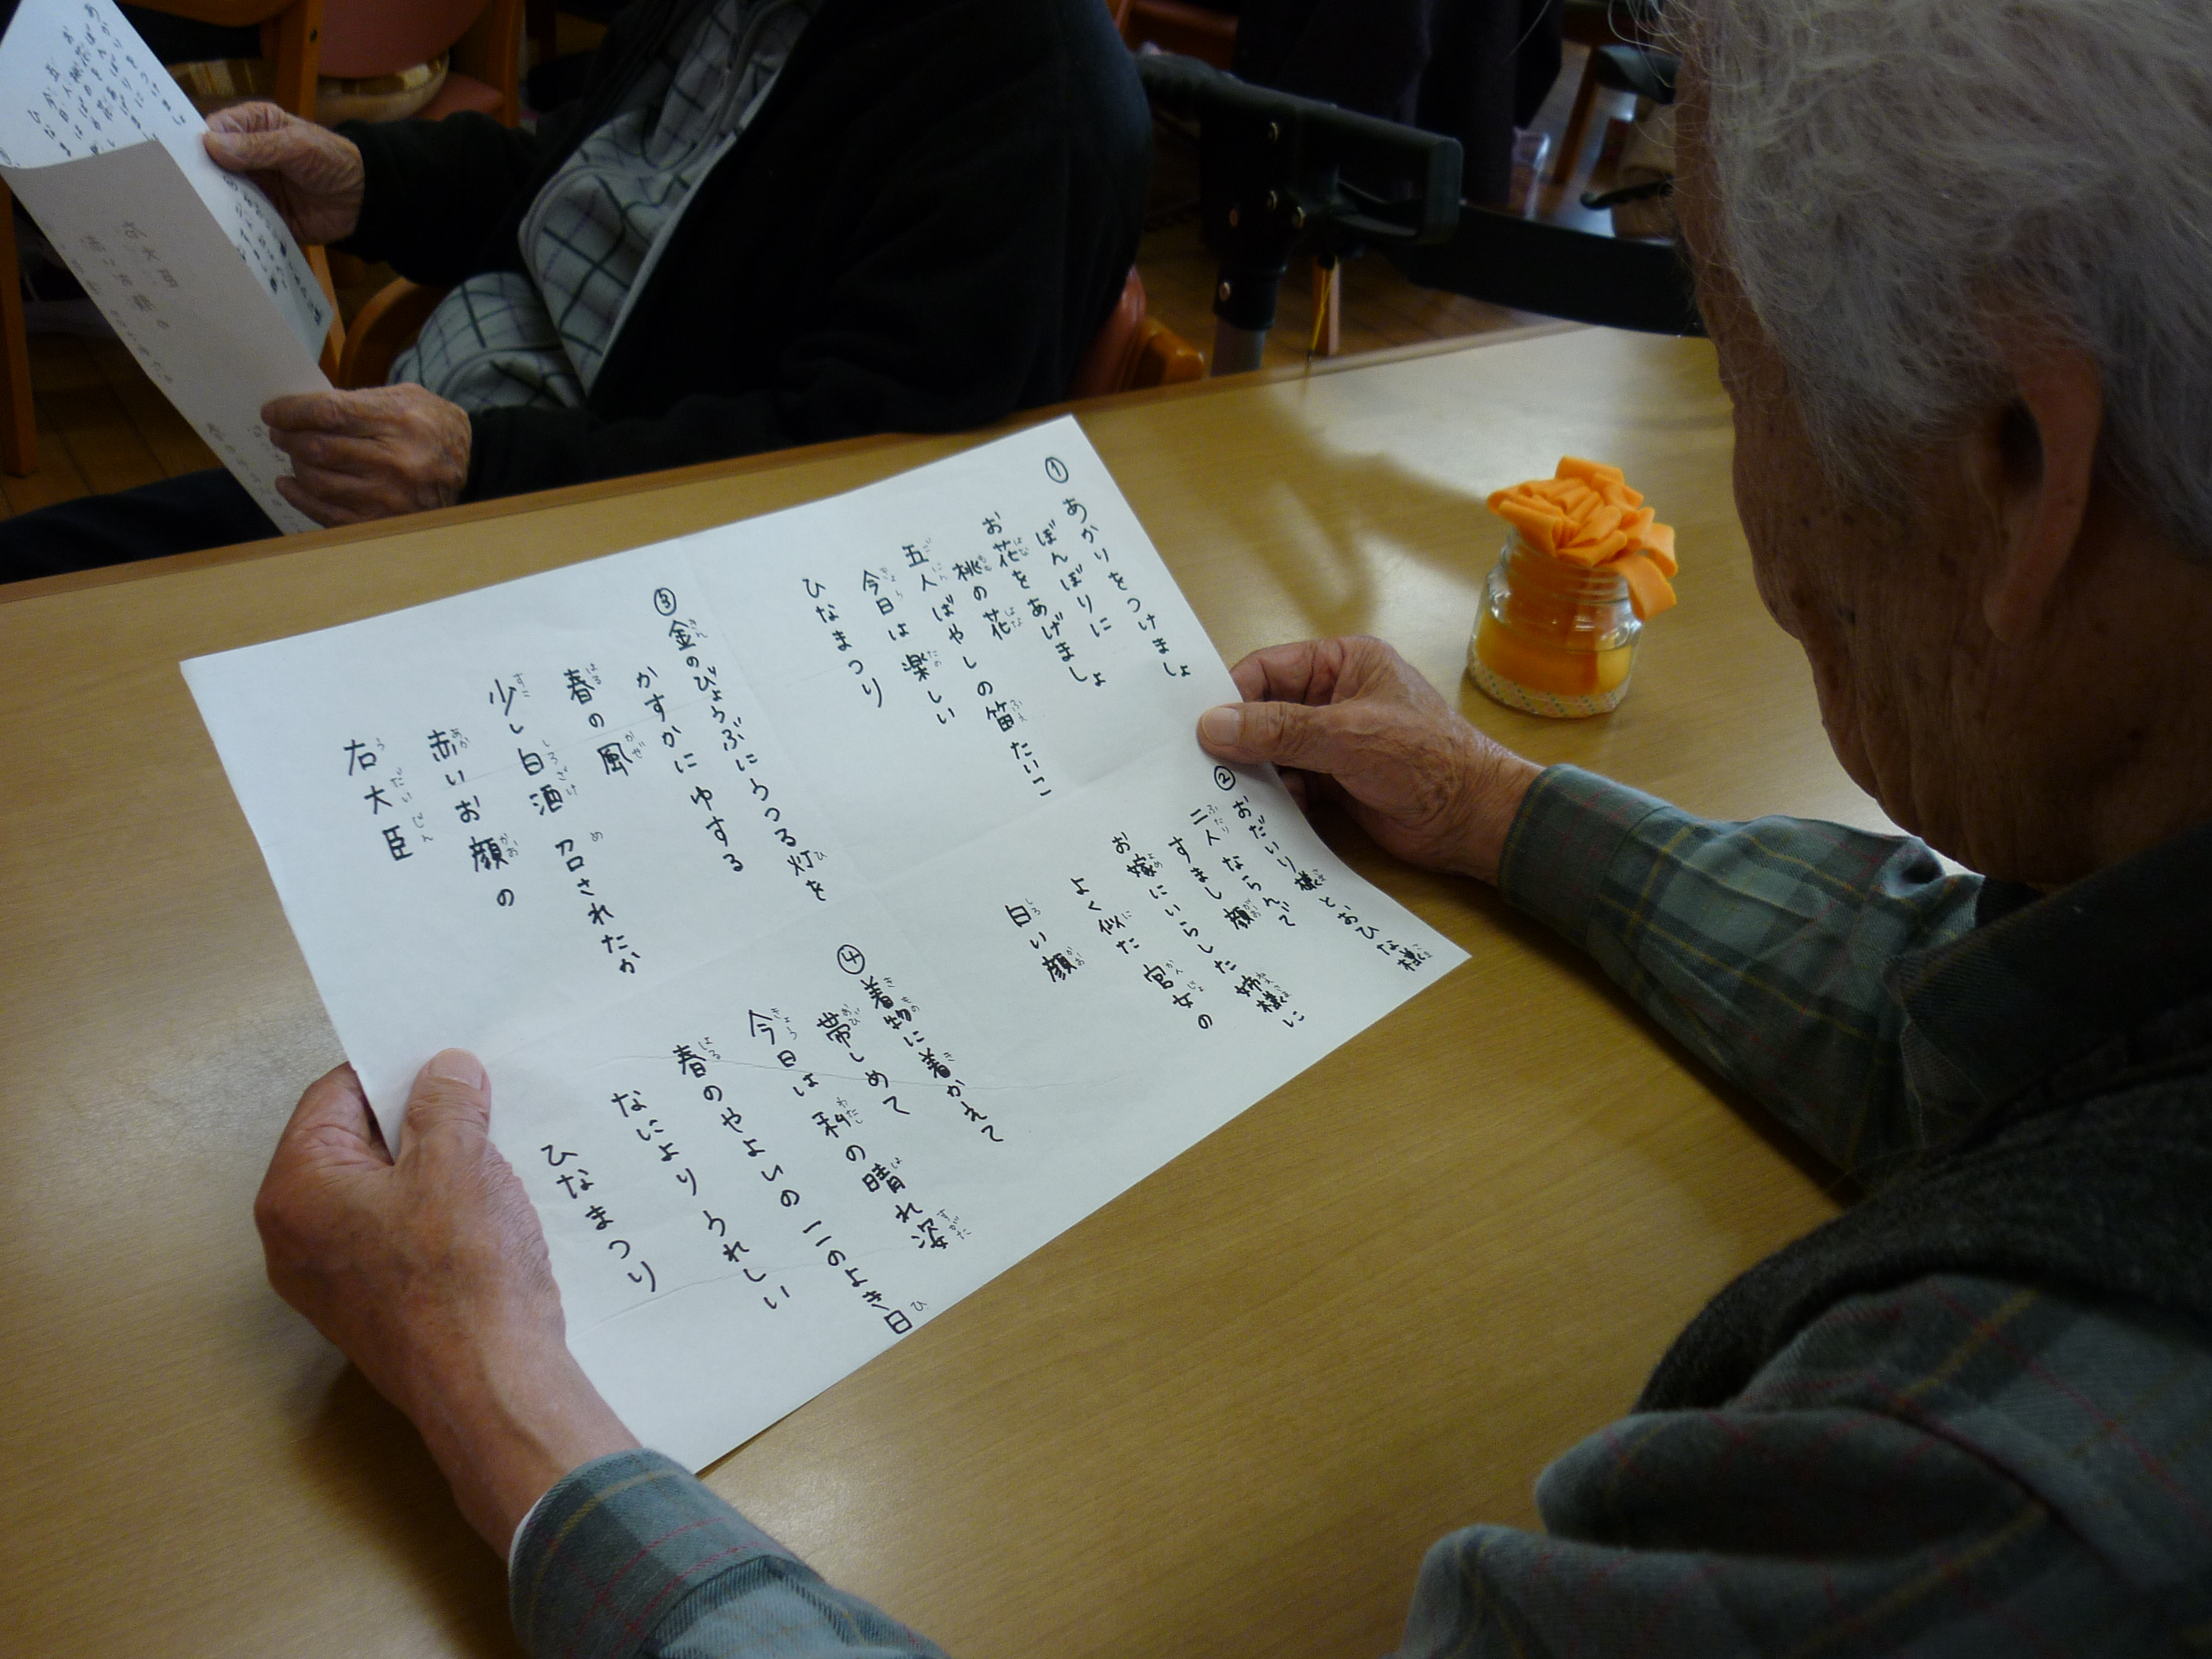 ①
あかりをつけましょ
ぼんぼりに
お花をあげましょ
桃の花
五人ばやしの笛たいこ
今日は楽しい
ひなまつり
②
おだいり様とおひな様
二人ならんで
すまし顔
お嫁にいらした姉様に
よく似た官女の
白い顔
③
金のびょうぶにうつる灯を
かすかにゆする
春の風
少し白酒召されたか
赤いお顔の
右大臣
④
着物に着かえて
帯しめて
今日は私の晴れ姿
春のやよいのこのよき日
なによりうれしい
ひなまつり